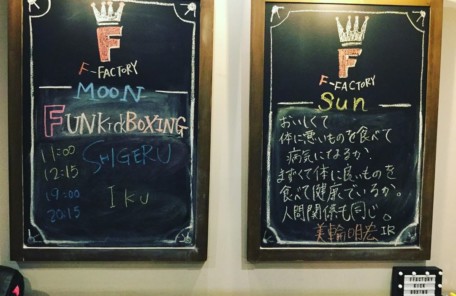 F
F-FACTORY
MOON
FUNKickBOXING
11:00
12:15
SHIGERU
19:00
20:15
Iku
F
F-FACTORY
Sun
おいしくて
体に悪いものを食べて
病気になるか、
まずくて体に良いものを
食べて健康でいるか。
人間関係も同じ。
美輪明宏 IR
FFACTORY
KICK
BOXING